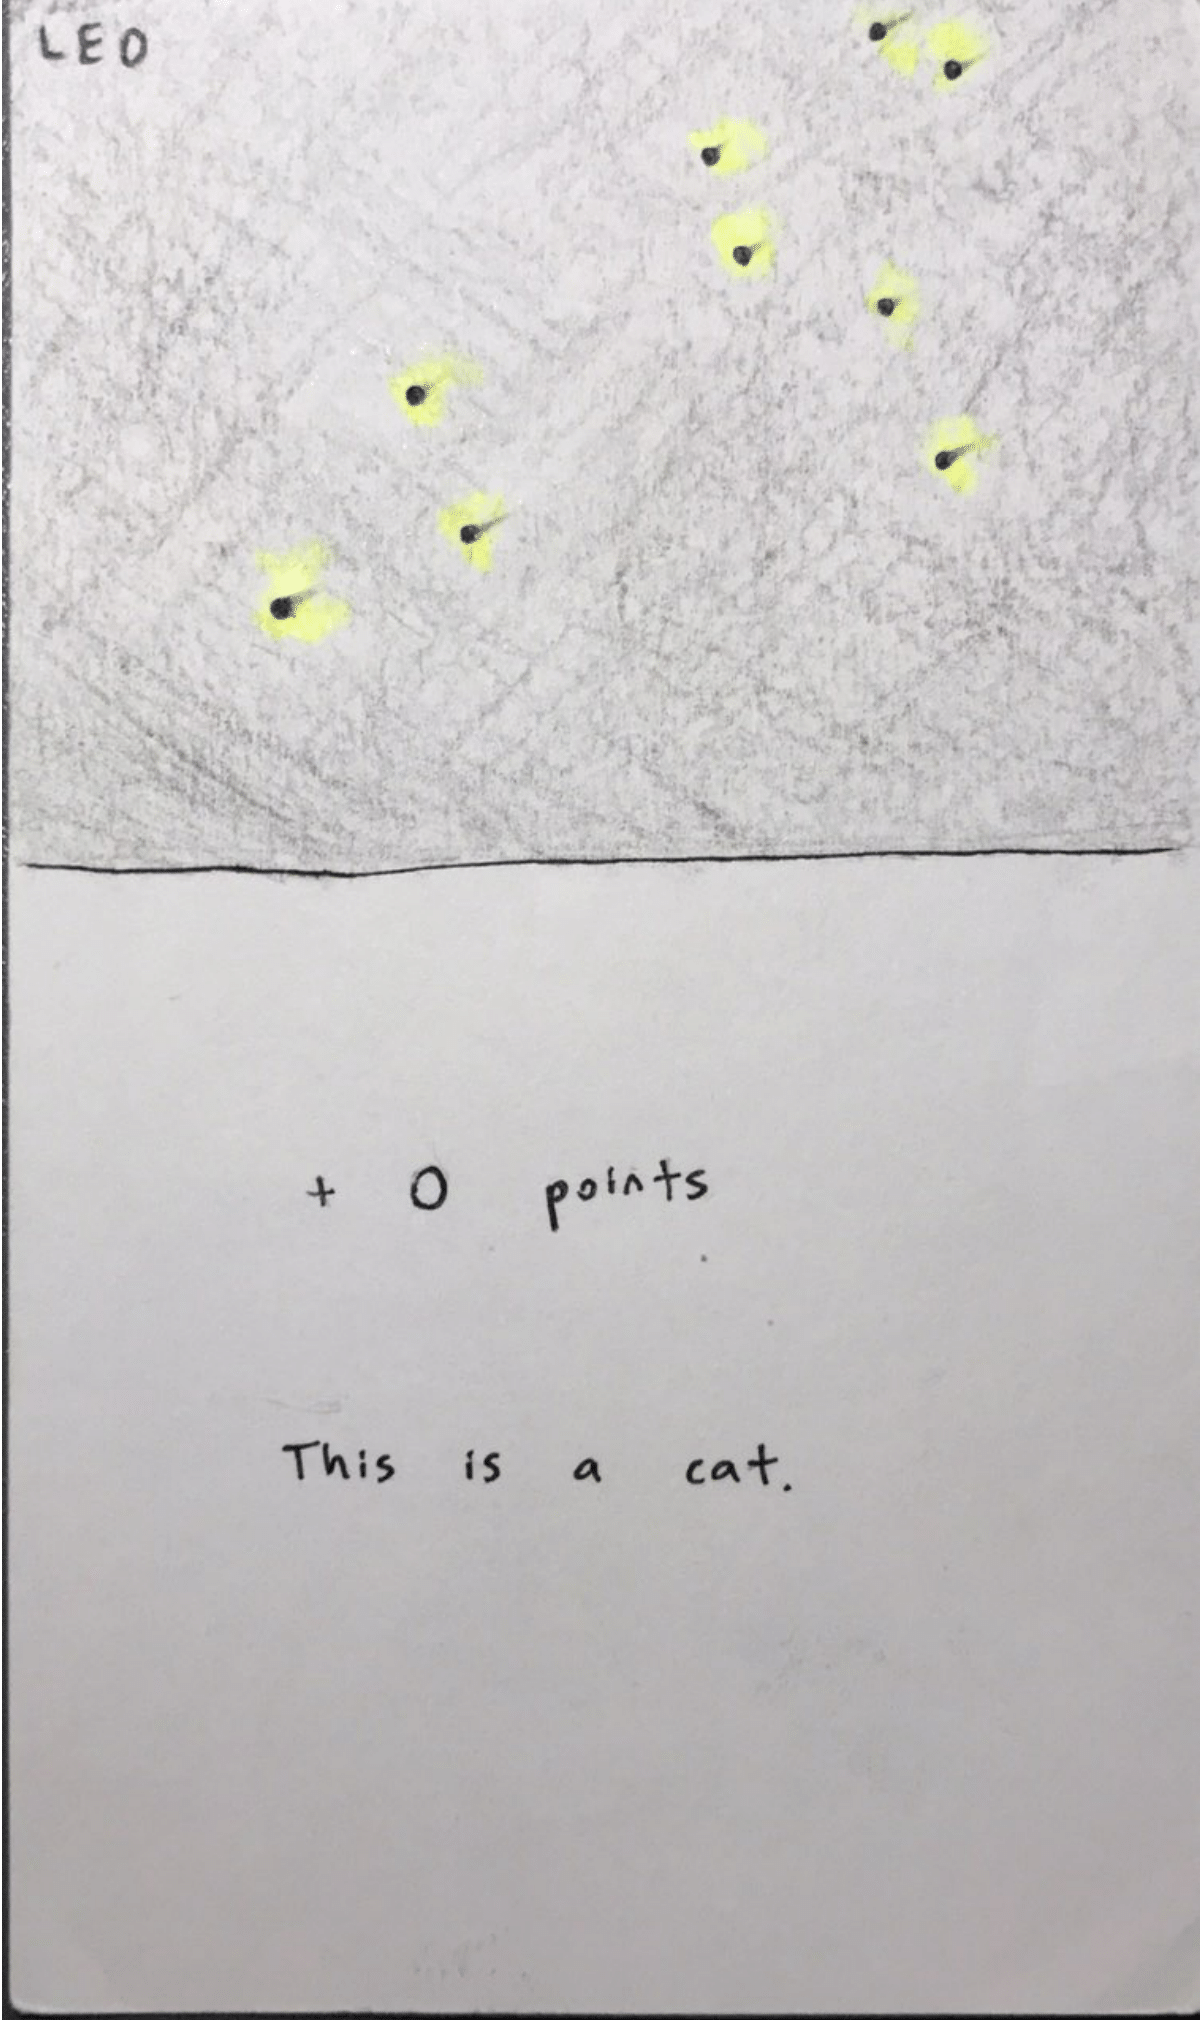 LEO
+ 0 points
This is a cat.